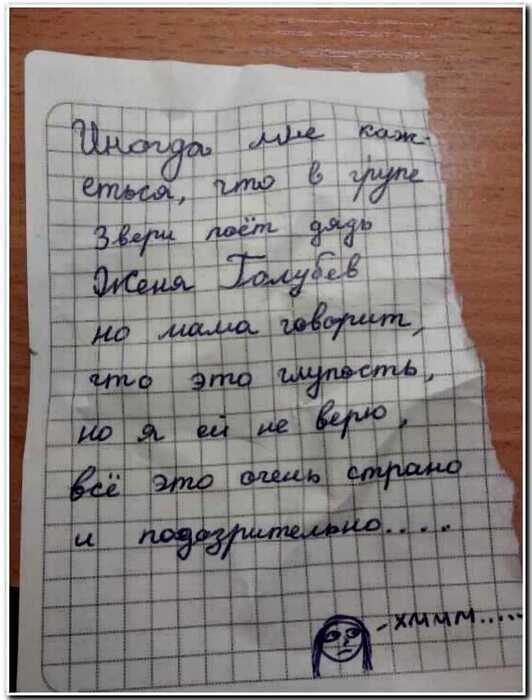 Иногда мне каж-
еться, что в групе
Звери поёт дядь
Женя Голубев
но мама говорит,
что это глупость,
но я ей не верю,
всё это очень страно
и подозрительно.....
-хммм.....